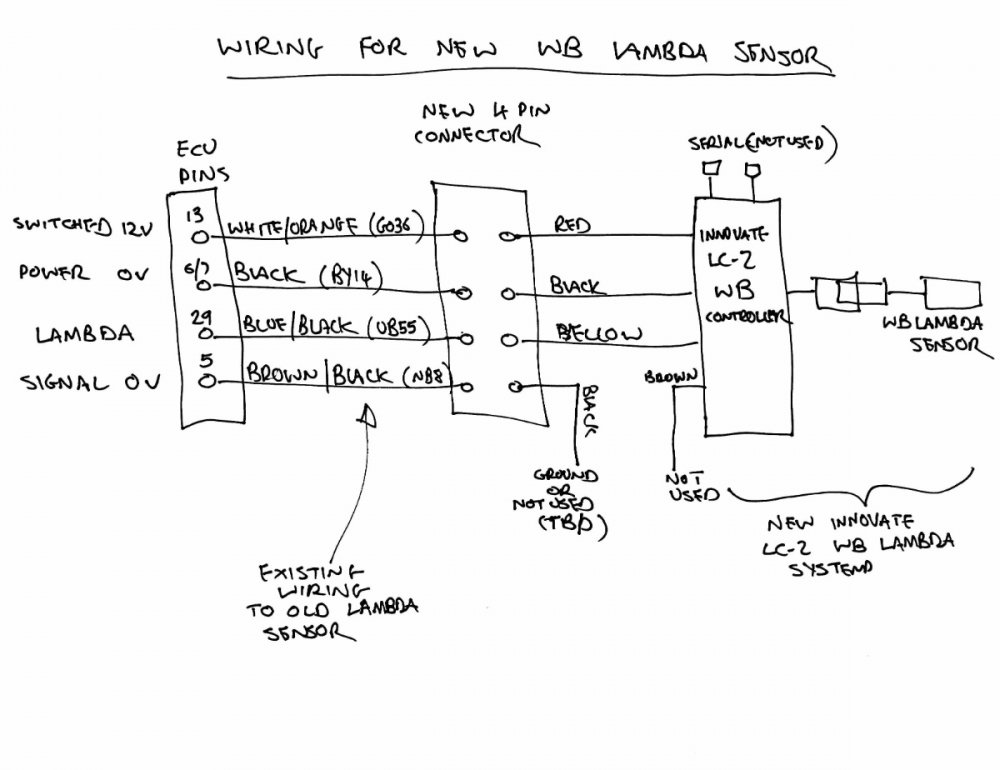 WIRING FOR NEW WB LAMBDA SENSOR
NEW 4 PIN
CONNECTOR
SERIAL (NOT USED)
ECU
PINS
SWITCHED 12V
13
WHITE/ORANGE (GO36)
RED
POWER 0V
6/7
BLACK (BY14)
BLACK
LAMBDA
29
BLUE/BLACK (UB55)
YELLOW
SIGNAL 0V
5
BROWN/BLACK (NB8)
BLACK
GROUND
OR
NOT USED
(TBD)
BROWN
NOT
USED
INNOVATE
LC-2
WB
CONTROLLER
WB LAMBDA
SENSOR
NEW INNOVATE
LC-2 WB LAMBDA
SYSTEM
EXISTING
WIRING
TO OLD LAMBDA
SENSOR